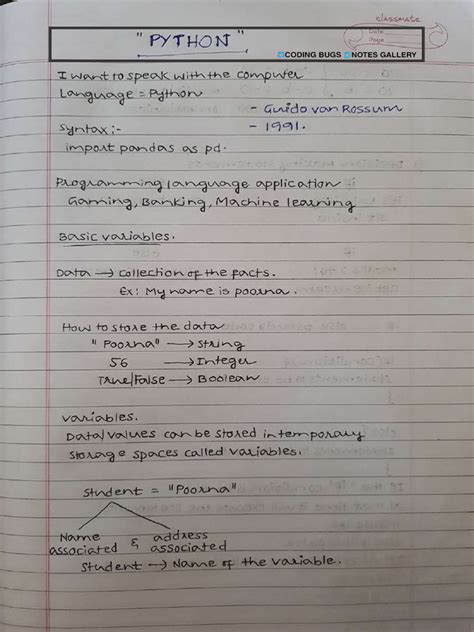 classmate
Date
Page
" PYTHON "
CODING BUGS NOTES GALLERY
I want to speak with the computer
Language = Python
- Guido van Rossum
- 1991.
Syntax :-
import pandas as pd.
Programming language application
Gaming, Banking, Machine learning
Basic variables.
Data → Collection of the facts.
Ex: My name is poorna.
How to store the data
" Poorna" → String
56 → Integer
True/False → Boolean
variables.
Data/values can be stored in temporary
storage spaces called variables.
Student = "Poorna"
Name associated & address associated
Student → Name of the variable.